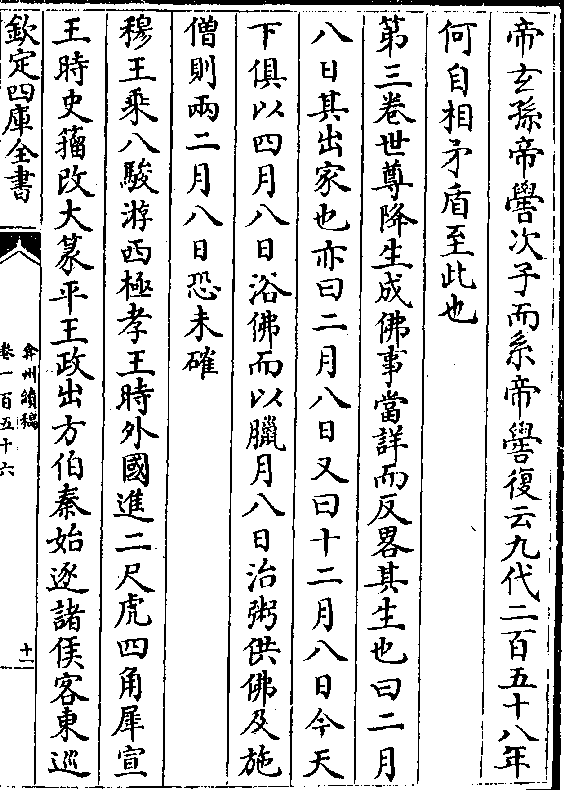 帝玄孫帝嚳次子而系帝嚳復云九代二百五十八年
何自相矛盾至此也
第三卷世尊降生成佛事當詳而反畧其生也曰二月
八日其出家也亦曰二月八日又曰十二月八日今天
下俱以四月八日浴佛而以臘月八日治粥供佛及施
僧則兩二月八日恐未確
穆王乘八駿游西極孝王時外國進二尺虎四角犀宣
王時史籀改大篆平王政出方伯秦始逐諸侯客東巡
欽定四庫全書
弇州續稿
卷一百五十六
十一